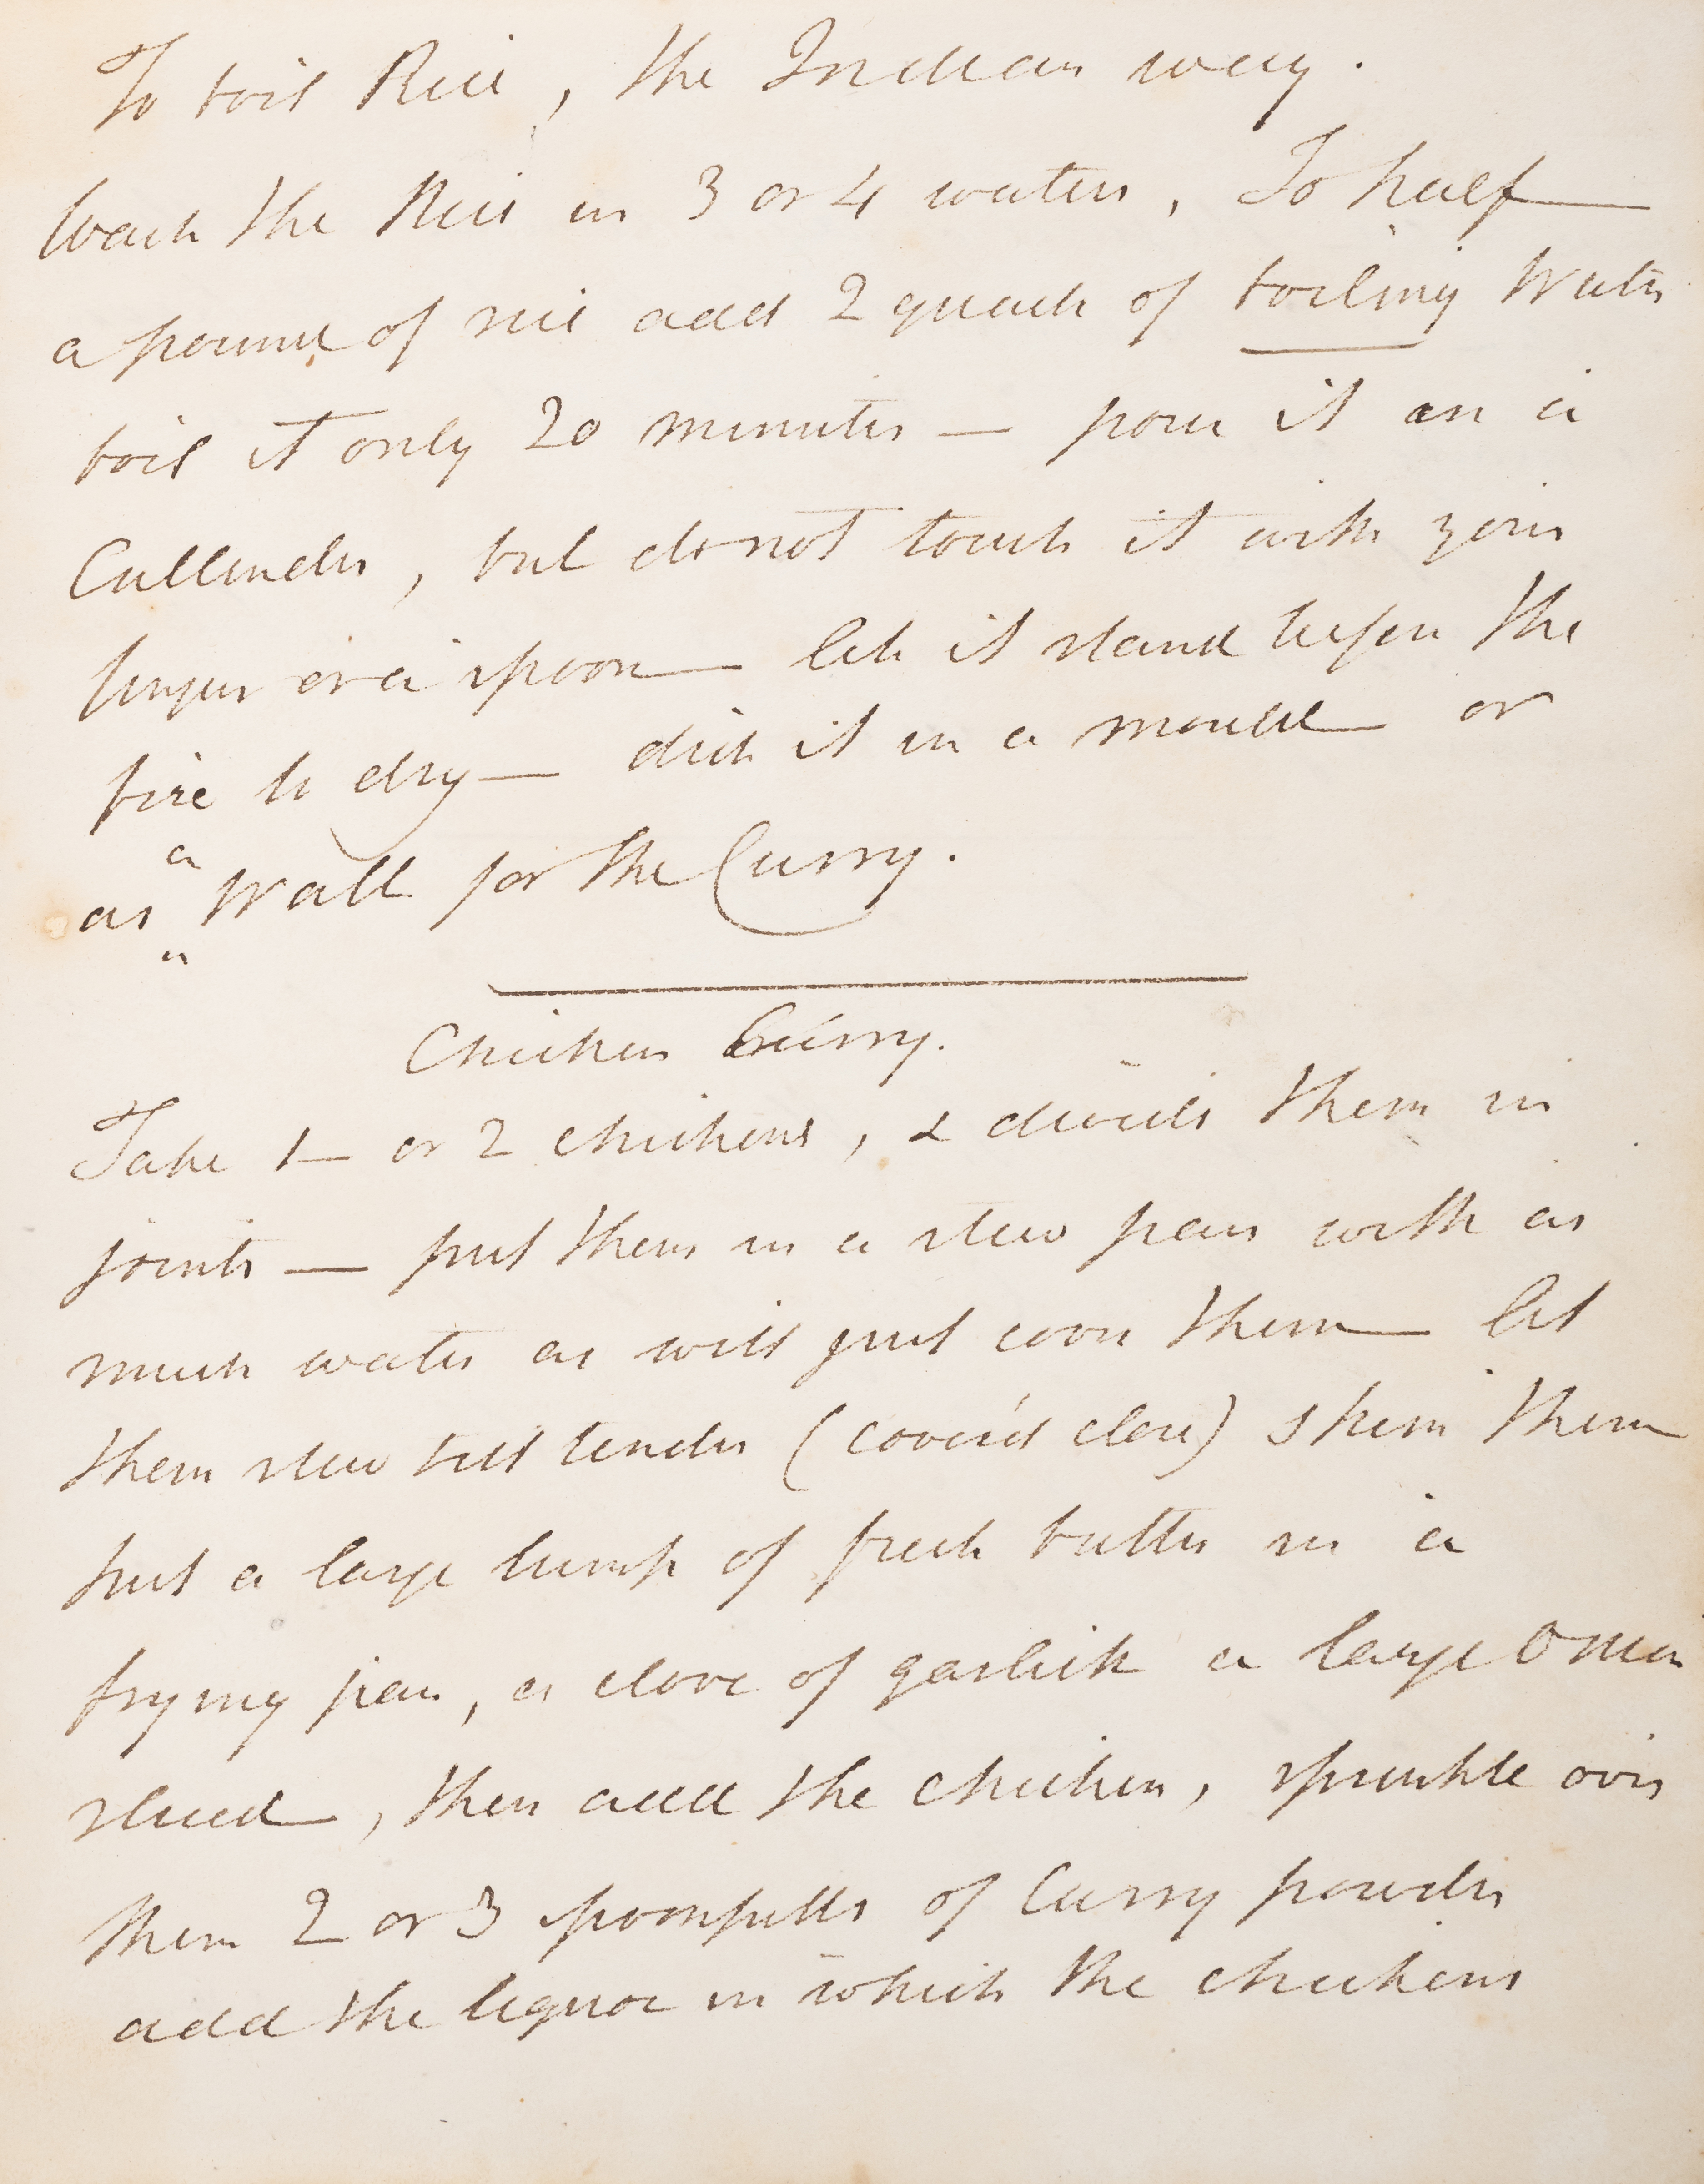 To boil Rice, the Indian way.
Wash the Rice in 3 or 4 waters, To half
a pound of rice add 2 quarts of boiling Water
boil it only 20 minutes — pour it in a
Cullender, but do not touch it with your
finger or a spoon — let it stand before the
fire to dry — dish it in a mould or
as a Wall for the Curry.
Chicken Curry.
Take 1 — or 2 chickens, & divide them in
joints — put them in a stew pan with as
much water as will just cover them — let
them stew till tender (cover'd close) skim them
put a large lump of fresh butter in a
frying pan, a clove of garlick a large Onion
sliced, then add the chicken, sprinkle over
them 2 or 3 spoonfulls of Curry powder
add the liquor in which the chickens